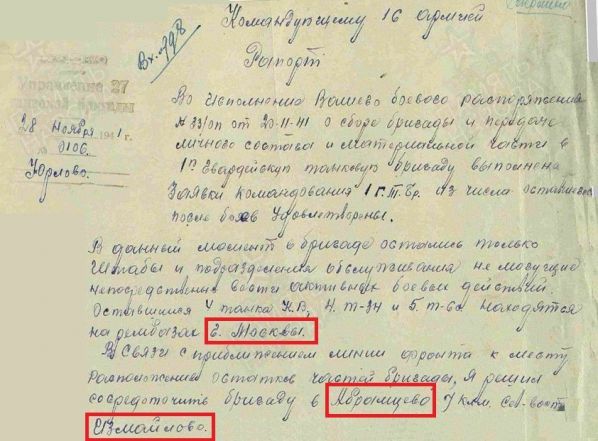 Вх. 798
Командующему 16 армией
Рапорт
Управление 27
танковой бригады
28 Ноября 1941 г.
№ 0106.
Юрлово.
Во исполнение Вашего боевого распоряжения
№ 33/оп от 20-11-41 о сборе бригады и передаче
личного состава и материальной части в
1ю Гвардейскую танковую бригаду выполнена
Заявки командования 1 г. Т. Бр. из числа оставшегося
после боёв удовлетворены.
В данный момент в бригаде остались только
Штабы и подразделения обслуживания не могущие
непосредственно вести активных боевых действий.
Оставшиеся 4 танка К.В, 4. Т-34 и 5. Т-60 находятся
на рембазах г. Москвы.
В связи с приближением линии фронта к месту
расположению остатков частей бригады, я решил
сосредоточить бригаду в Абрамцево 7 клм. сев-вост.
Измайлово.